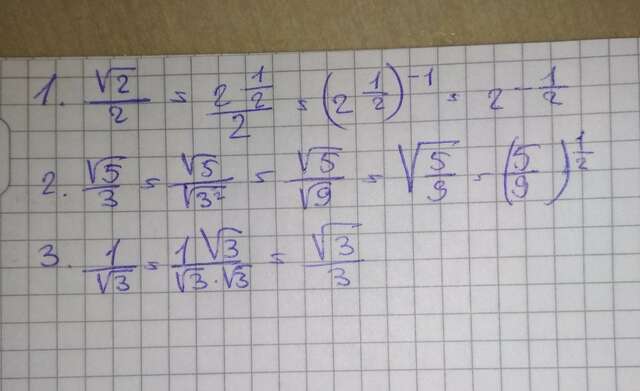 1. √2/2 = 2^(1/2)/2 = (2^(1/2))^(-1) = 2^(-1/2)
2. √5/3 = √5/√3² = √5/√9 = √(5/9) = (5/9)^(1/2)
3. 1/√3 = 1√3/(√3·√3) = √3/3